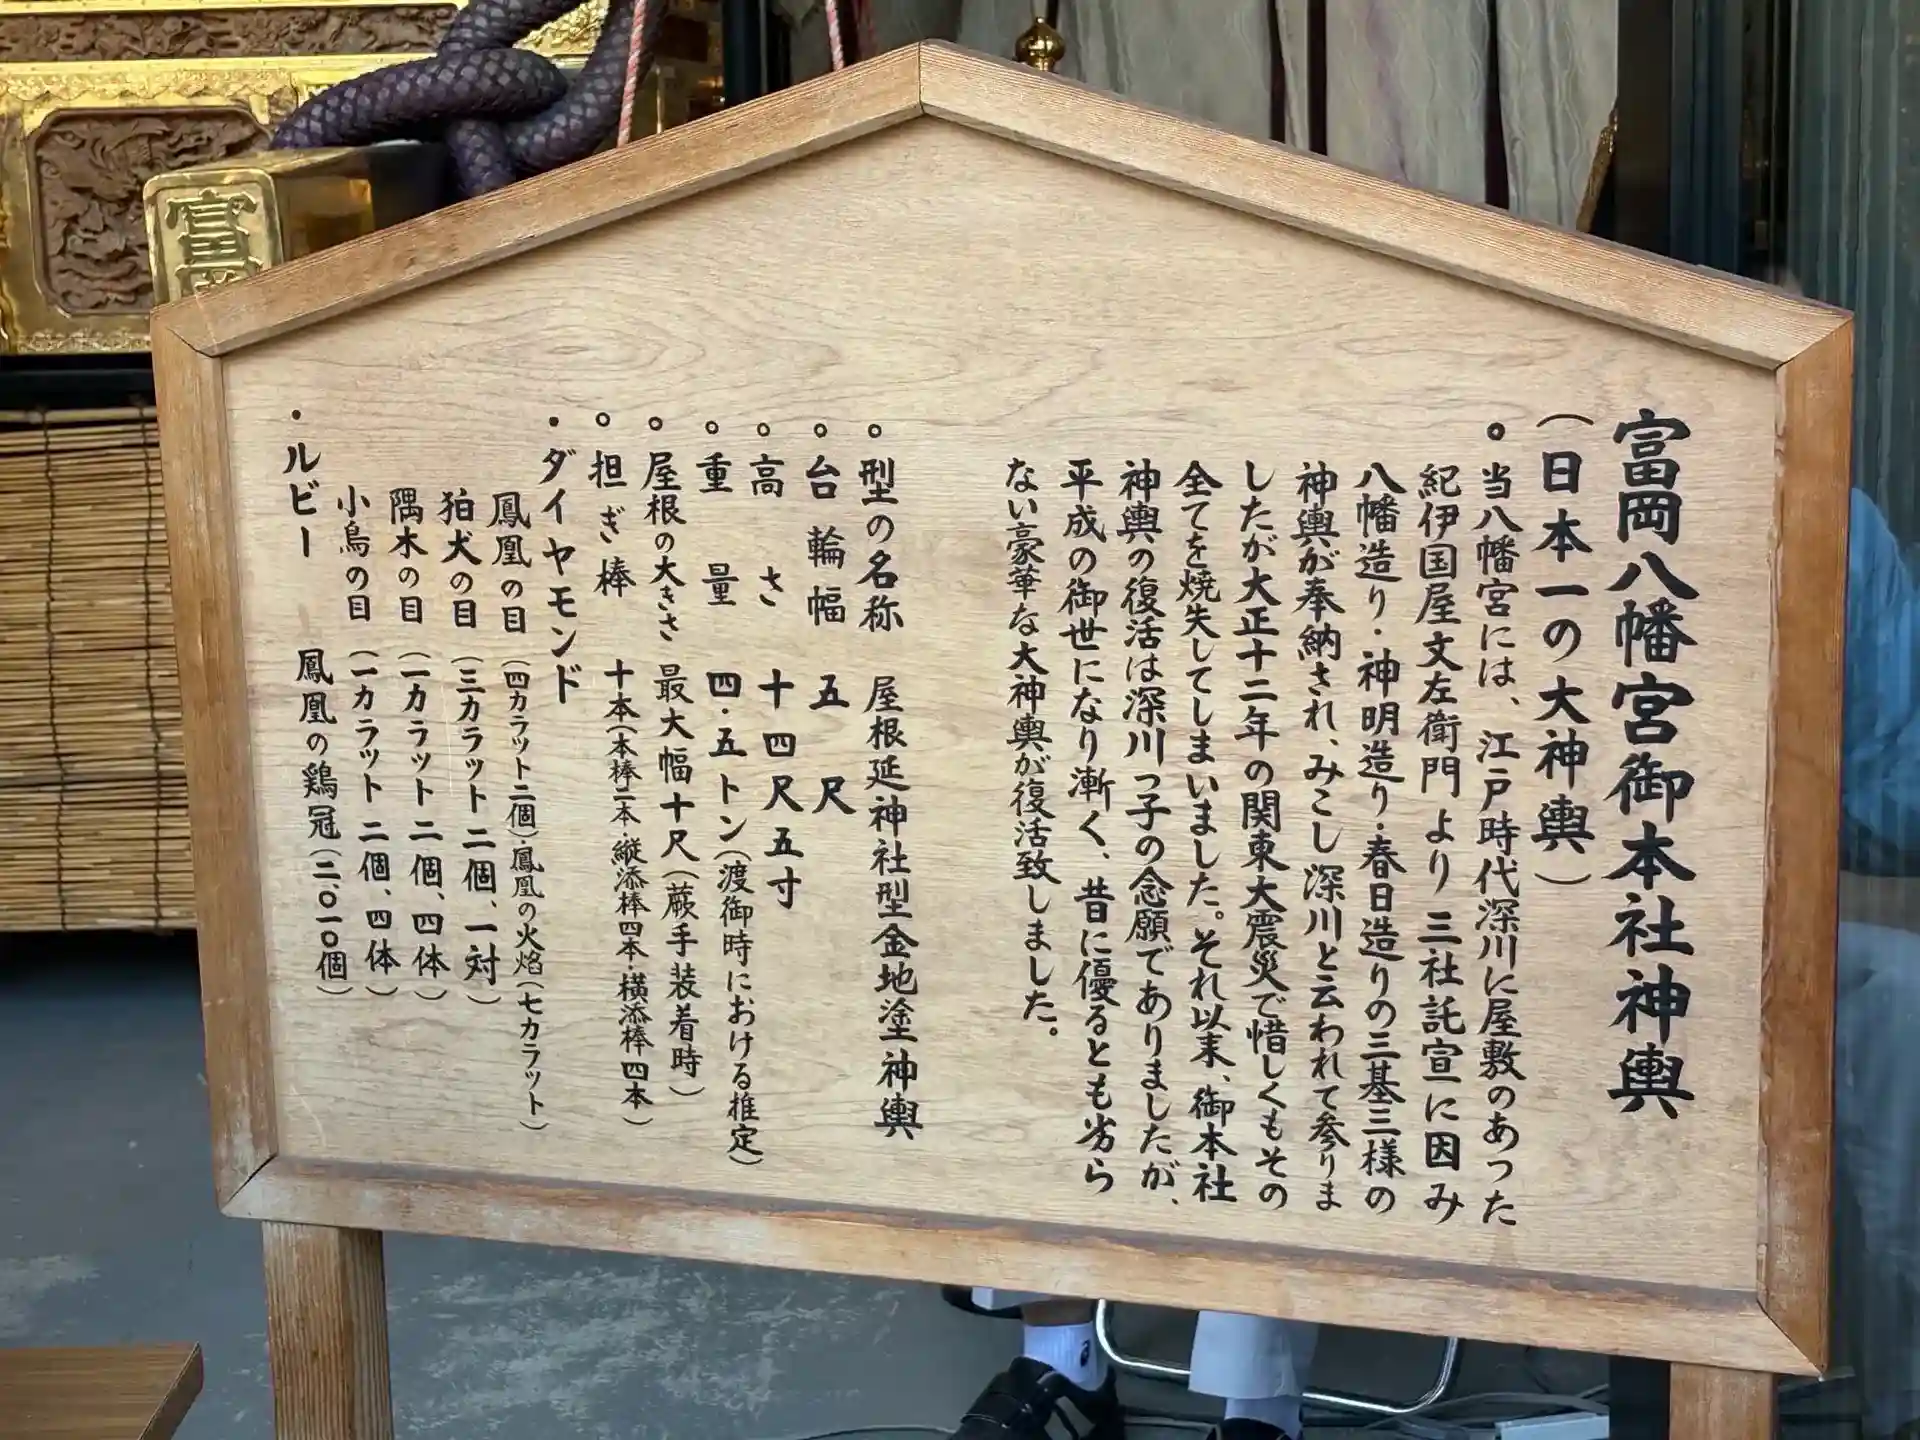 富岡八幡宮御本社神輿
(日本一の大神輿)
。当八幡宮には、江戸時代深川に屋敷のあった
紀伊国屋文左衛門より三社託宣に因み
八幡造り・神明造り・春日造りの三基三様の
神輿が奉納され、みこし深川と云われて参りま
したが大正十二年の関東大震災で惜しくもその
全てを焼失してしまいました。それ以来、御本社
神輿の復活は深川っ子の念願でありましたが、
平成の御世になり漸く、昔に優るとも劣ら
ない豪華な大神輿が復活致しました。
。型の名称 屋根延神社型金地塗神輿
。台輪幅 五尺
。高さ 十四尺五寸
。重量 四・五トン(渡御時における推定)
。屋根の大きさ 最大幅十尺(蕨手装着時)
。担ぎ棒 十本(本棒二本・縦添棒四本・横添棒四本)
・ダイヤモンド
鳳凰の目(四カラット二個)・鳳凰の火焰(七カラット)
狛犬の目(三カラット二個、一対)
隅木の目(一カラット二個、四体)
小鳥の目(一カラット二個、四体)
・ルビー 鳳凰の鶏冠(二、〇一〇個)
富岡